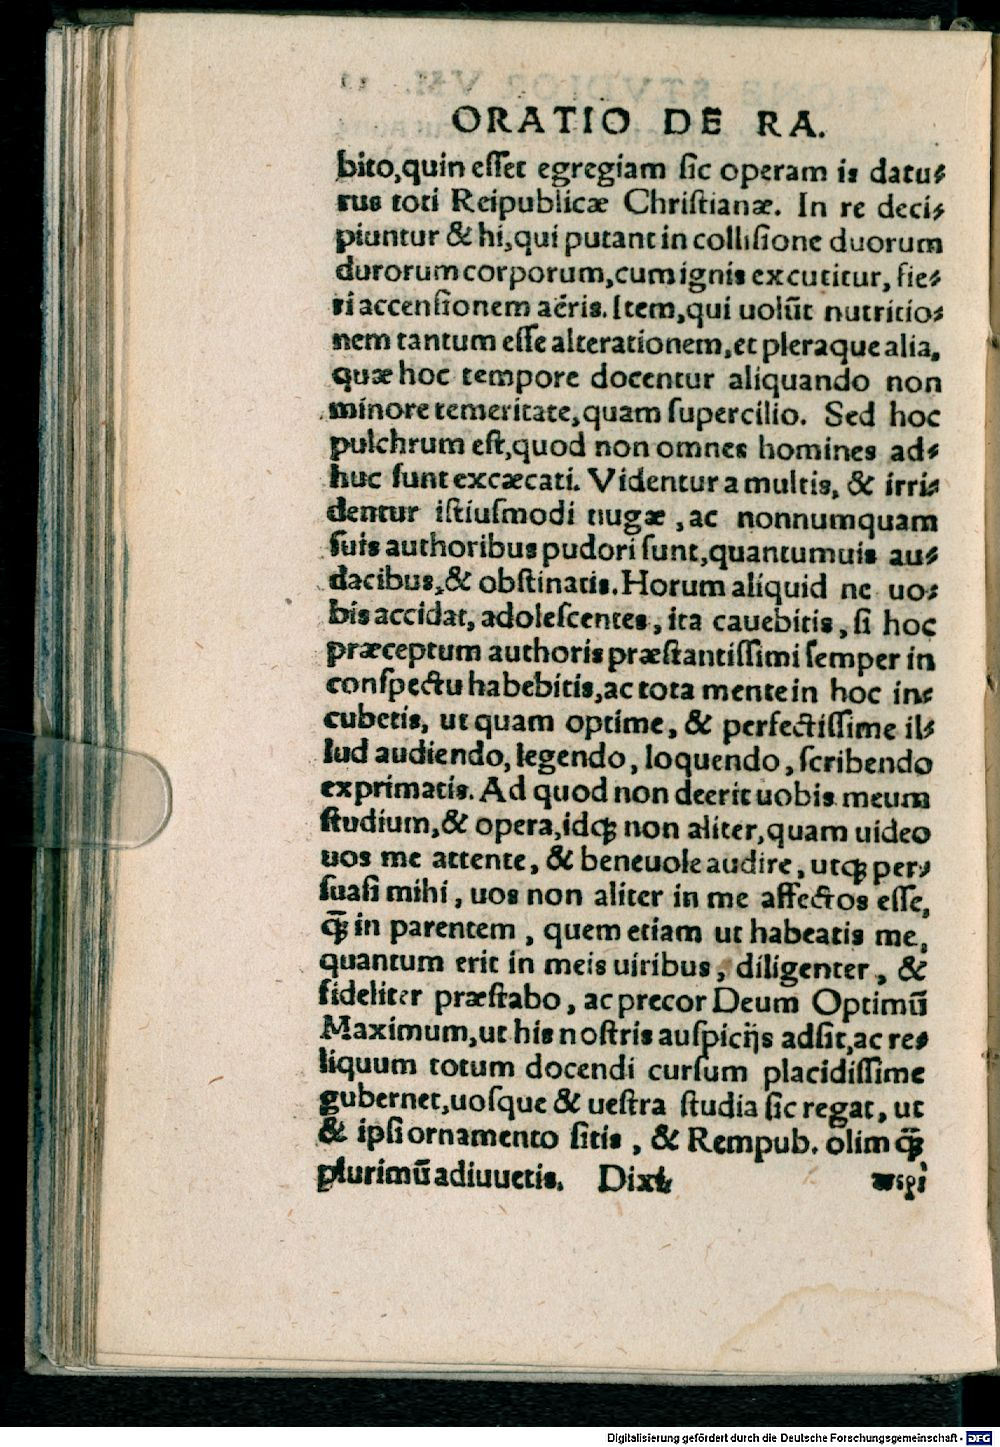 ORATIO DE RA.
bito,quin eſſet egregiam ſic operam is datu⸗
rus toti Reipublicæ Chriſtianæ. In re deci⸗
piuntur & hi,qui putant in colliſione duorum
durorum corporum,cum ignis excutitur, fie⸗
ri accenſionem aëris. Item,qui uolūt nutritio⸗
nem tantum eſſe alterationem,et pleraque alia,
quæ hoc tempore docentur aliquando non
minore temeritate,quam ſupercilio. Sed hoc
pulchrum eſt,quod non omnes homines ad⸗
huc ſunt excæcati. Videntur a multis, & irri⸗
dentur iſtiuſmodi nugæ , ac nonnumquam
ſuis authoribus pudori ſunt,quantumuis au⸗
dacibus,& obſtinatis. Horum aliquid ne uo⸗
bis accidat, adoleſcentes, ita cauebitis, ſi hoc
præceptum authoris præſtantiſſimi ſemper in
conſpectu habebitis,ac tota mente in hoc in⸗
cubetis, ut quam optime, & perfectiſſime il⸗
lud audiendo, legendo, loquendo, ſcribendo
exprimatis. Ad quod non deerit uobis meum
ſtudium,& opera,idꝗ non aliter,quam uideo
uos me attente, & beneuole audire, utꝗ per⸗
ſuaſi mihi, uos non aliter in me affectos eſſe,
ꝗ̃ in parentem , quem etiam ut habeatis me,
quantum erit in meis uiribus, diligenter, &
fideliter præſtabo, ac precor Deum Optimū
Maximum,ut his noſtris auſpicijs adſit,ac re⸗
liquum totum docendi curſum placidiſſime
gubernet,uoſque & ueſtra ſtudia ſic regat, ut
& ipſi ornamento ſitis, & Rempub. olim ꝗ̃
plurimū adiuuetis. Dixi.
Digitalisierung gefördert durch die Deutsche Forschungsgemeinschaft - DFG